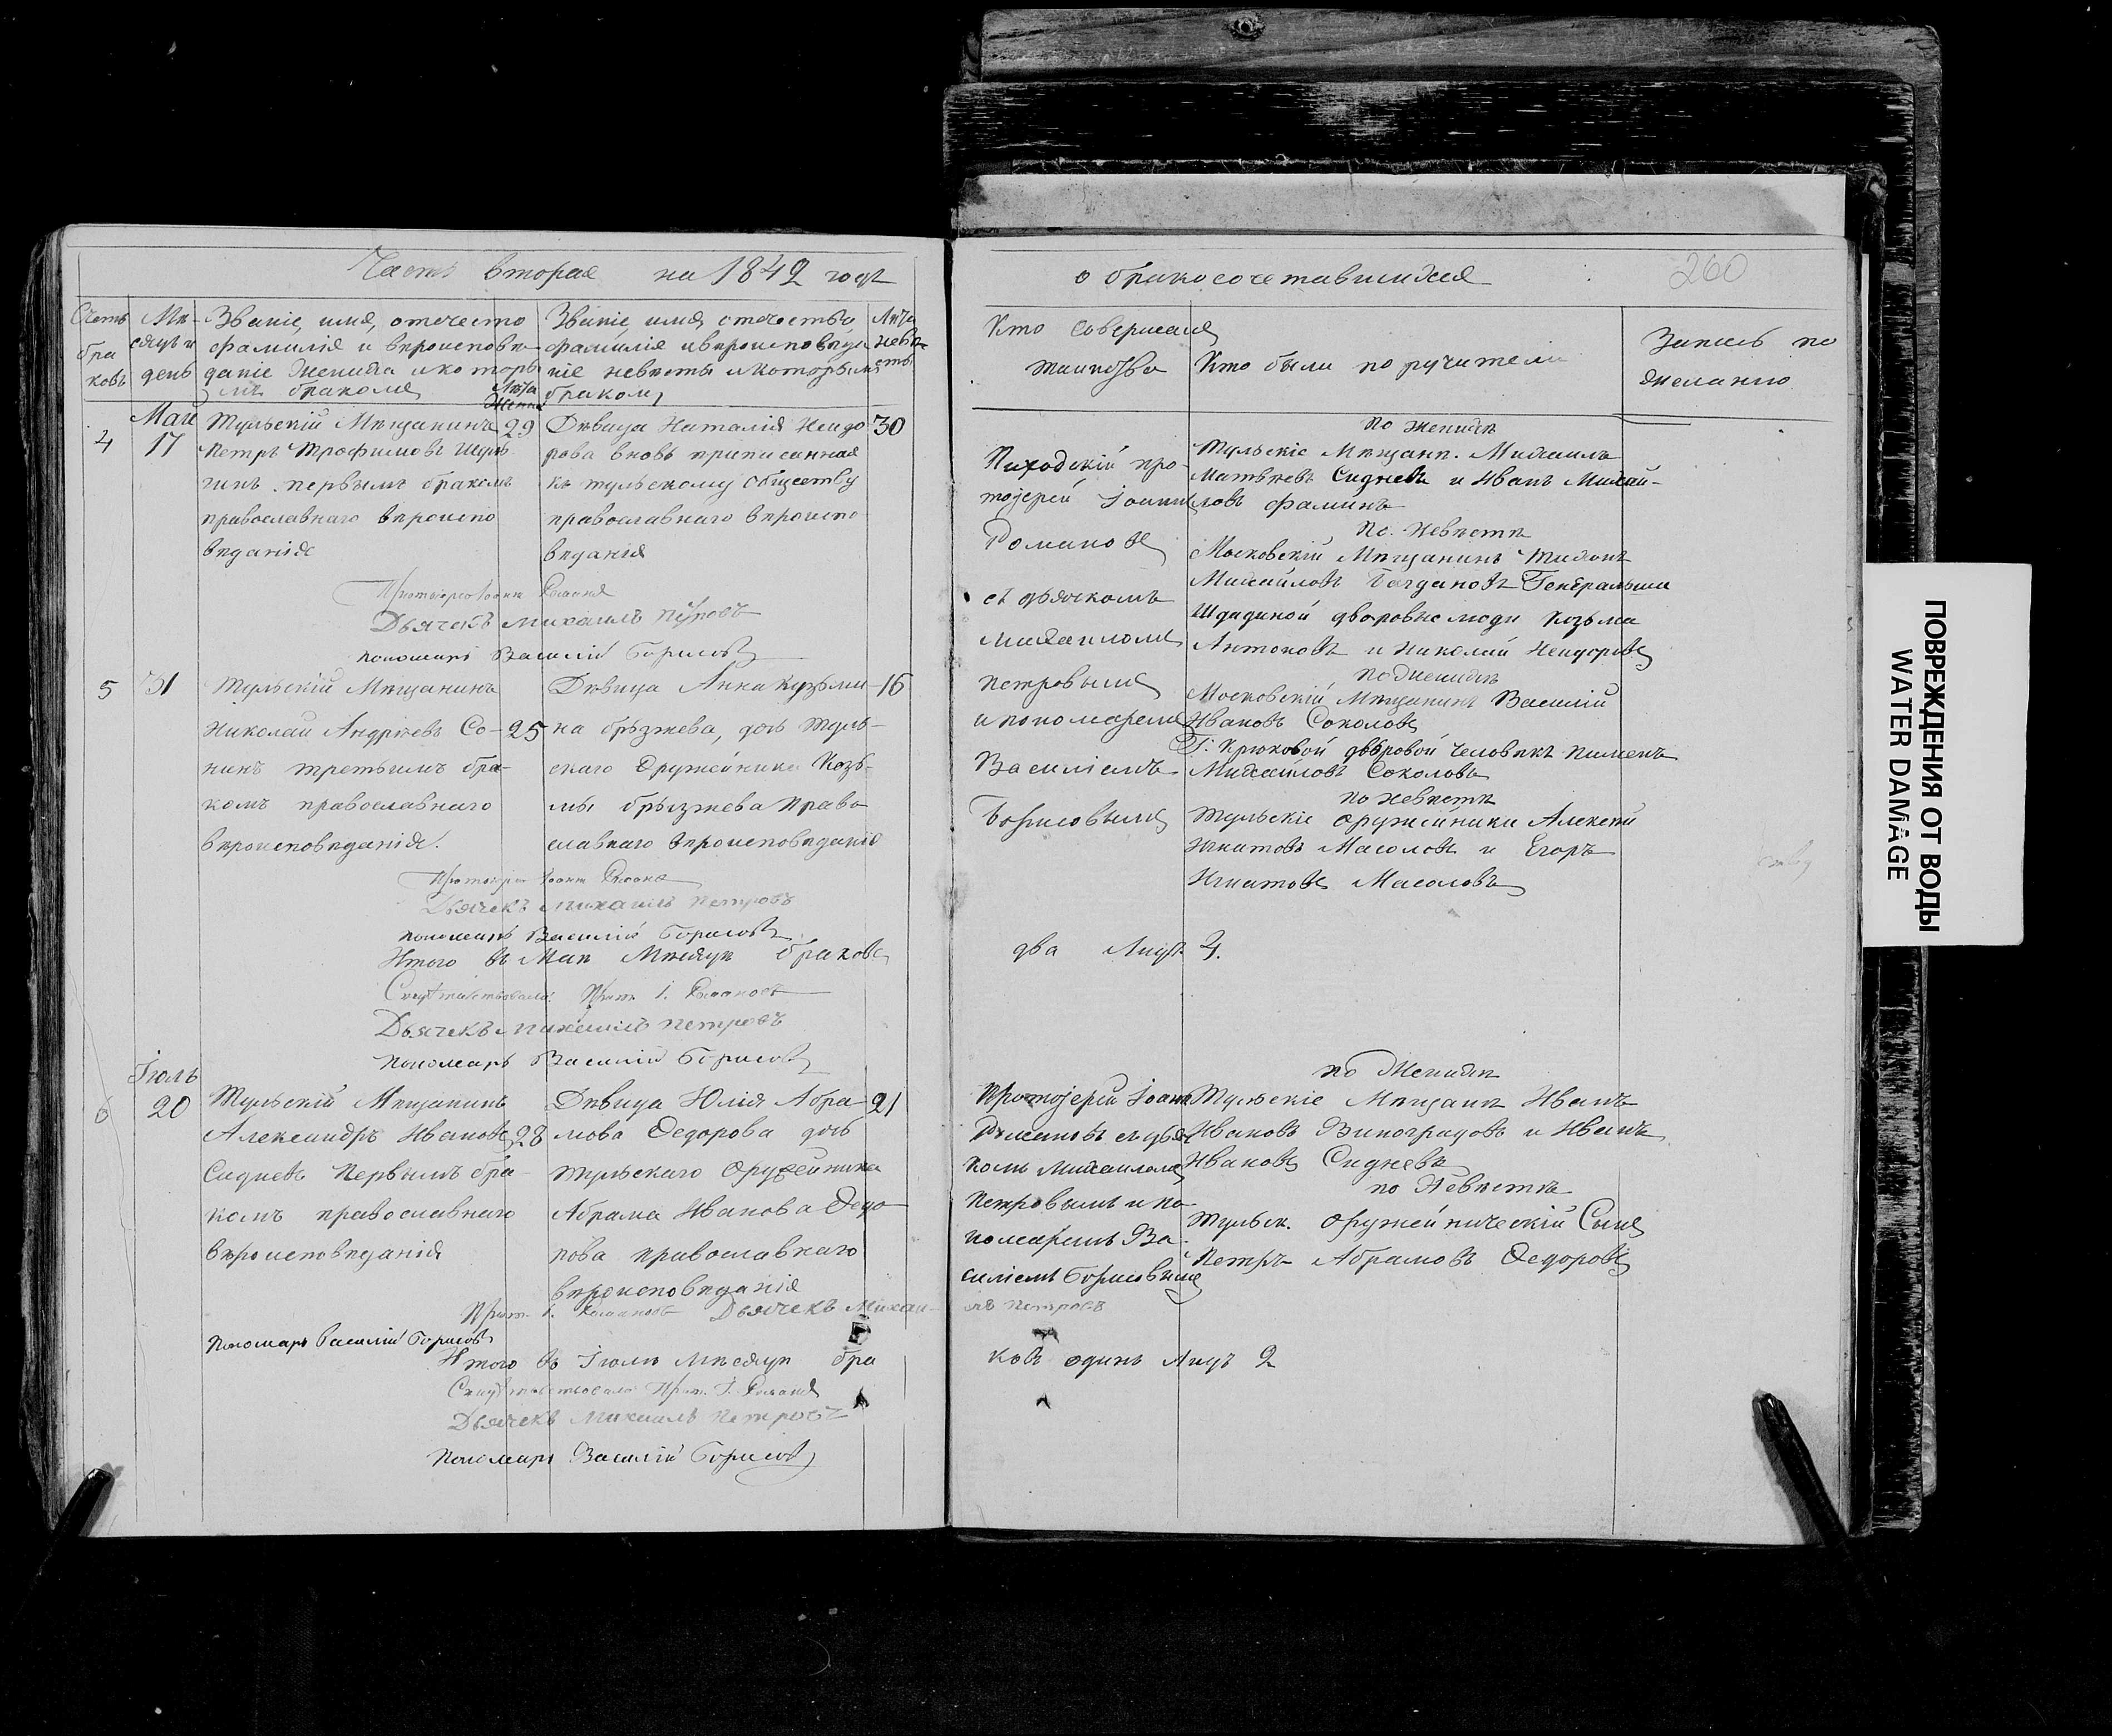 Часть вторая на 1842 годъ
о бракосочетавшихся
260
Счетъ браковъ
Мѣсяцъ и день
Званіе, имя, отечество
фамилія и вѣроисповѣ-
даніе жениха и которы
мъ бракомъ
Лѣта
Жениха
Званіе, имя, отечество
фамилія и вѣроисповѣда
ніе невѣсты и которымъ
бракомъ
Лѣта
невѣ-
сты
Кто совершалъ
таинство
Кто были поручители
Запись по
желанію
4
Маій
17
Тульскій Мѣщанинъ
Петръ Трофимовъ
первымъ бракомъ
православнаго вѣроиспо
вѣданія
29
Дѣвица Наталія Неидо
рова вновь приписанная
къ тульскому обществу
православнаго вѣроиспо
вѣданія
30
Протоіерей Іоаннъ Романовъ
Дьячекъ Михаилъ Петровъ
пономарь Василій Борисовъ
Приходскій про-
тоіерей Іоаннъ
Романовъ
съ дьячкомъ
Михаиломъ
Петровымъ
и пономаремъ
Василіемъ
Борисовымъ
по женихѣ
Тульскіе Мѣщан. Михаилъ
Матвѣевъ Сидневъ и Иванъ Михай-
ловъ Фаминъ
по невѣстѣ
Московскій Мѣщанинъ Тихонъ
Михайловъ Богдановъ Генеральши
дворовые люди Козьма
Антоновъ и Николай Неидоровъ
5
31
Тульскій Мѣщанинъ
Николай Андрѣевъ Со-
нинъ третьимъ бра-
комъ православнаго
вѣроисповѣданія.
25
Дѣвица Анна Кузьми-
на Брызжева, дочь Туль-
скаго Оружейника Козь-
мы Брызжева право
славнаго вѣроисповѣданія
16
Протоіерей Іоаннъ Романовъ
Дьячекъ Михаилъ Петровъ
пономарь Василій Борисовъ
по женихѣ
Московскій Мѣщанинъ Василій
Ивановъ Соколовъ
Г. Крюковой дворовой человѣкъ Пименъ
Михайловъ Соколовъ
по невѣстѣ
Тульскіе оружейники Алексѣй
Игнатовъ Масоловъ и Егоръ
Игнатовъ Масоловъ
Итого въ Маи Мѣсяцѣ браковъ
два Лицъ 4.
Свидѣтельствовали Прот. І. Романовъ
Дьячекъ Михаилъ Петровъ
Пономарь Василій Борисовъ
6
Іюль
20
Тульскій Мѣщанинъ
Александръ Ивановъ
Сидневъ первымъ бра-
комъ православнаго
вѣроисповѣданія
28
Дѣвица Юлія Абра-
мова Федорова дочь
тульскаго Оружейника
Абрама Иванова Федо-
рова православнаго
вѣроисповѣданія
21
Протоіерей Іоаннъ
Романовъ съ дьяч
комъ Михаиломъ
Петровымъ и по-
номаремъ Ва-
силіемъ Борисовымъ
по Женихѣ
Тульскіе Мѣщане Иванъ
Ивановъ Виноградовъ и Иванъ
Ивановъ Сидневъ
по Невѣстѣ
Тульск. оружейническій Сынъ
Петръ Абрамовъ Федоровъ
Прот. І. Романовъ Дьячекъ Михаи-
лъ Петровъ
Пономарь Василій Борисовъ
Итого въ Іюлѣ Мѣсяцѣ бра
ковъ одинъ Лицъ 2
Свидѣтельствовали Прот. І. Романовъ
Дьячекъ Михаилъ Петровъ
Пономарь Василій Борисовъ
ПОВРЕЖДЕНИЯ ОТ ВОДЫ
WATER DAMAGE